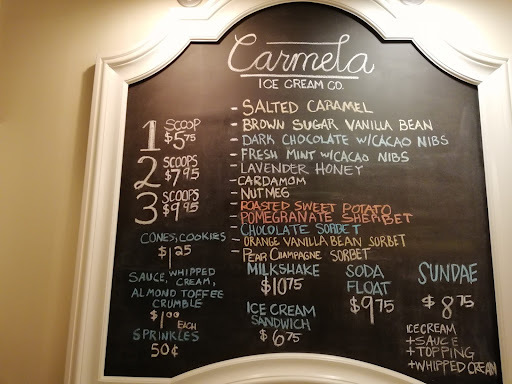 Carmela
ICE CREAM CO.
- SALTED CARAMEL
- BROWN SUGAR VANILLA BEAN
- DARK CHOCOLATE W/CACAO NIBS
- FRESH MINT W/CACAO NIBS
- LAVENDER HONEY
- CARDAMOM
- NUTMEG
- ROASTED SWEET POTATO
- POMEGRANATE SHERBET
- CHOCOLATE SORBET
- ORANGE VANILLA BEAN SORBET
- PEAR CHAMPAGNE SORBET
1 SCOOP $5.75
2 SCOOPS $7.95
3 SCOOPS $9.95
CONES, COOKIES
$1.25
SAUCE, WHIPPED
CREAM,
ALMOND TOFFEE
CRUMBLE
$1.00 EACH
SPRINKLES
50¢
MILKSHAKE
$10.75
ICE CREAM
SANDWICH
$6.75
SODA
FLOAT
$9.75
SUNDAE
$8.75
ICECREAM
+SAUCE
+TOPPING
+WHIPPED CREAM